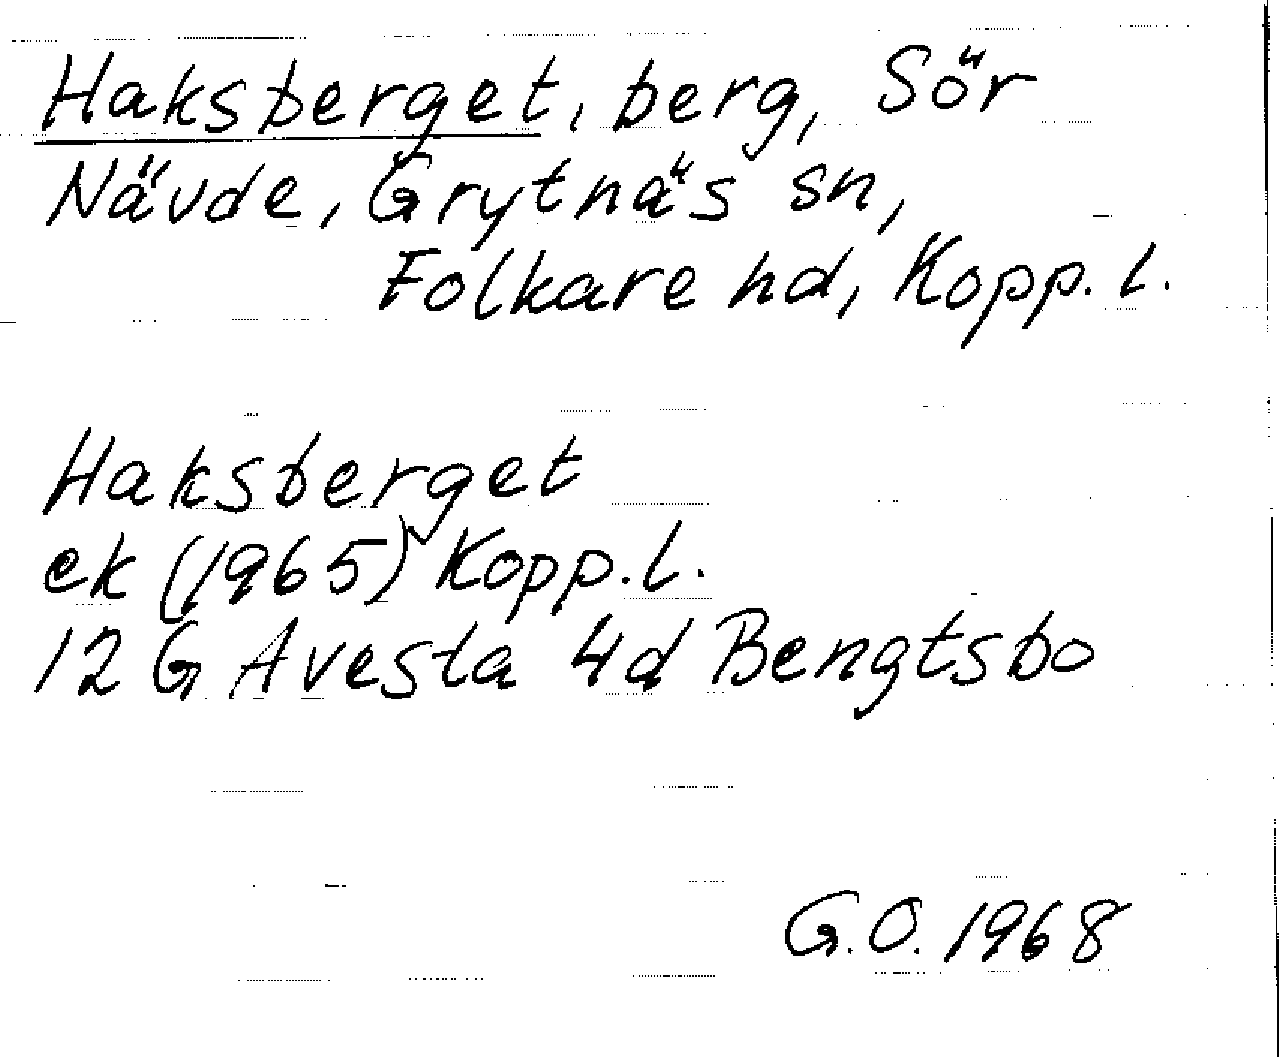 Haksberget, berg, Sör
Nävde, Grytnäs sn,
Folkare hd, Kopp. l.
Haksberget
ek (1965) Kopp. l.
12 G Avesta 4d Bengtsbo
G.O. 1968